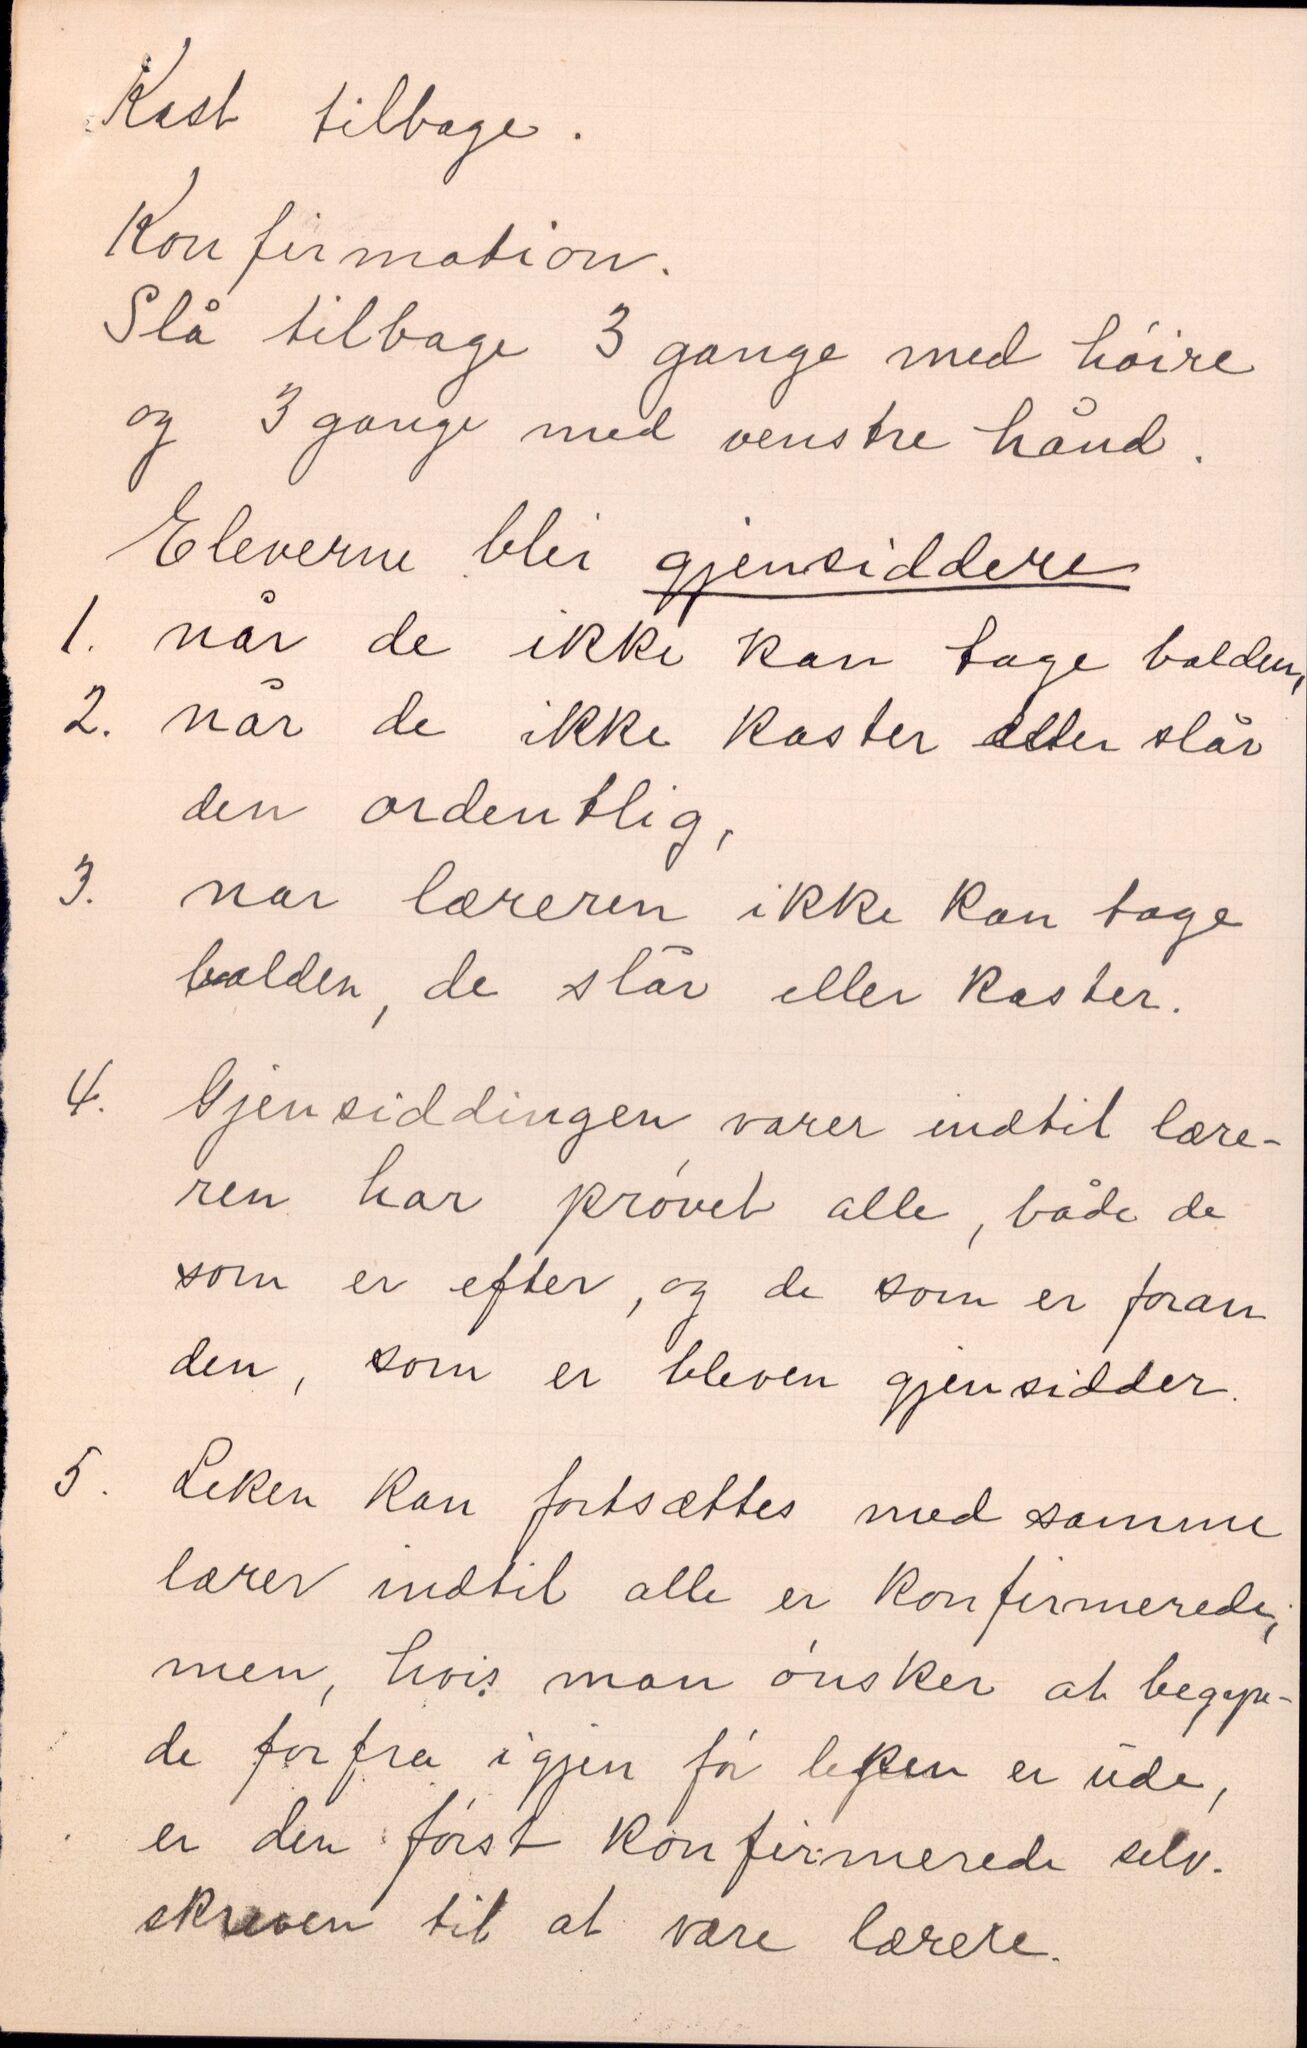 Kast tilbage.
Konfirmation.
Slå tilbage 3 gange med høire
og 3 gange med venstre hånd.
Eleverne blir gjensiddere
1. når de ikke kan tage balden,
2. når de ikke kaster eller slår
den ordentlig,
3. nar læreren ikke kan tage
balden, de slår eller kaster.
4. Gjensiddingen varer indtil lære-
ren har prøvet alle, både de
som er efter, og de som er foran
den, som er bleven gjensidder.
5. Leken kan fortsættes med samme
lærer indtil alle er konfirmerede;
men, hvis man ønsker at begyn-
de forfra igjen før leken er ude,
er den først konfirmerede selv-
skreven til at være lærere.